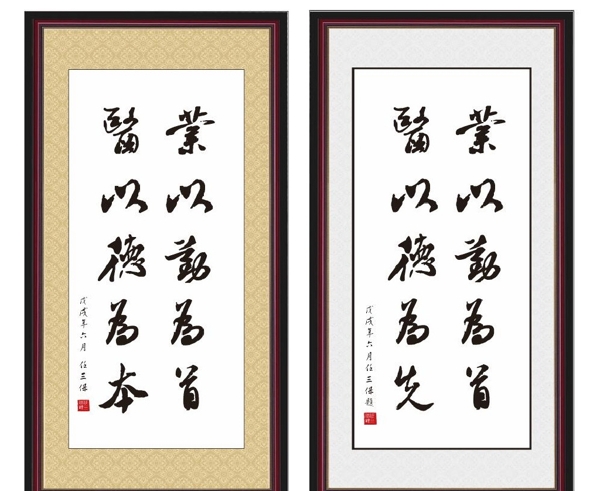 業以勤為首
醫以德為本
戊戌年六月 任三保
業以勤為首
醫以德為先
戊戌年六月任三保題